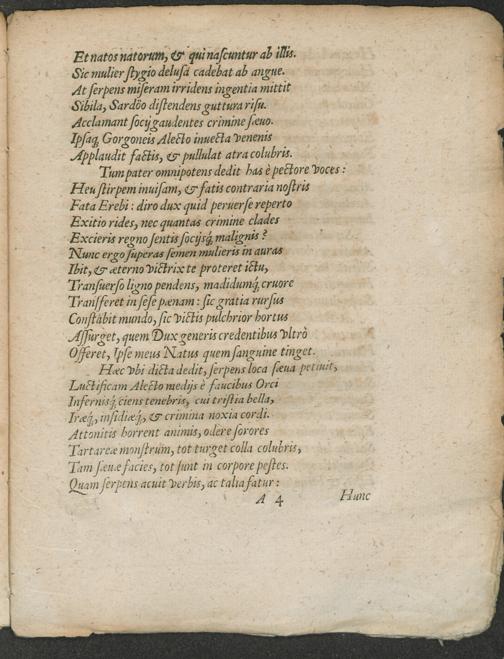 Et natos natorum, & qui nascuntur ab illis.
Sic mulier stygio delusa cadebat ab angue.
At serpens miseram irridens ingentia mittit
Sibila, Sardöo distendens guttura risu.
Acclamant socij gaudentes crimine sæuo.
Ipsaq́; Gorgoneis Alecto inuecta venenis
Applaudit factis, & pullulat atra colubris.
Tum pater omnipotens dedit has è pectore voces:
Heu stirpem inuisam, & fatis contraria nostris
Fata Erebi: diro dux quid peruerse reperto
Exitio rides, nec quantas crimine clades
Excieris regno sentis socijsq́; malignis?
Nunc ergo superas semen mulieris in auras
Ibit, & æterno victrix te proteret ictu,
Transuerso ligno pendens, madidumq́; cruore
Transferet in sese pœnam: sic gratia rursus
Constabit mundo, sic victis pulchrior hortus
Assurget, quem Dux generis credentibus vltrò
Offeret, Ipse meus Natus quem sanguine tinget.
Hæc vbi dicta dedit, serpens loca sæua petiuit,
Luctificam Alecto medijs è faucibus Orci
Infernisq́; ciens tenebris, cui tristia bella,
Iræq́;, insidiæq́;, & crimina noxia cordi.
Attonitis horrent animis, odere sorores
Tartareæ monstrum, tot turget colla colubris,
Tam sæuæ facies, tot sunt in corpore pestes.
Quam serpens acuit verbis, ac talia fatur:
A 4 Hunc